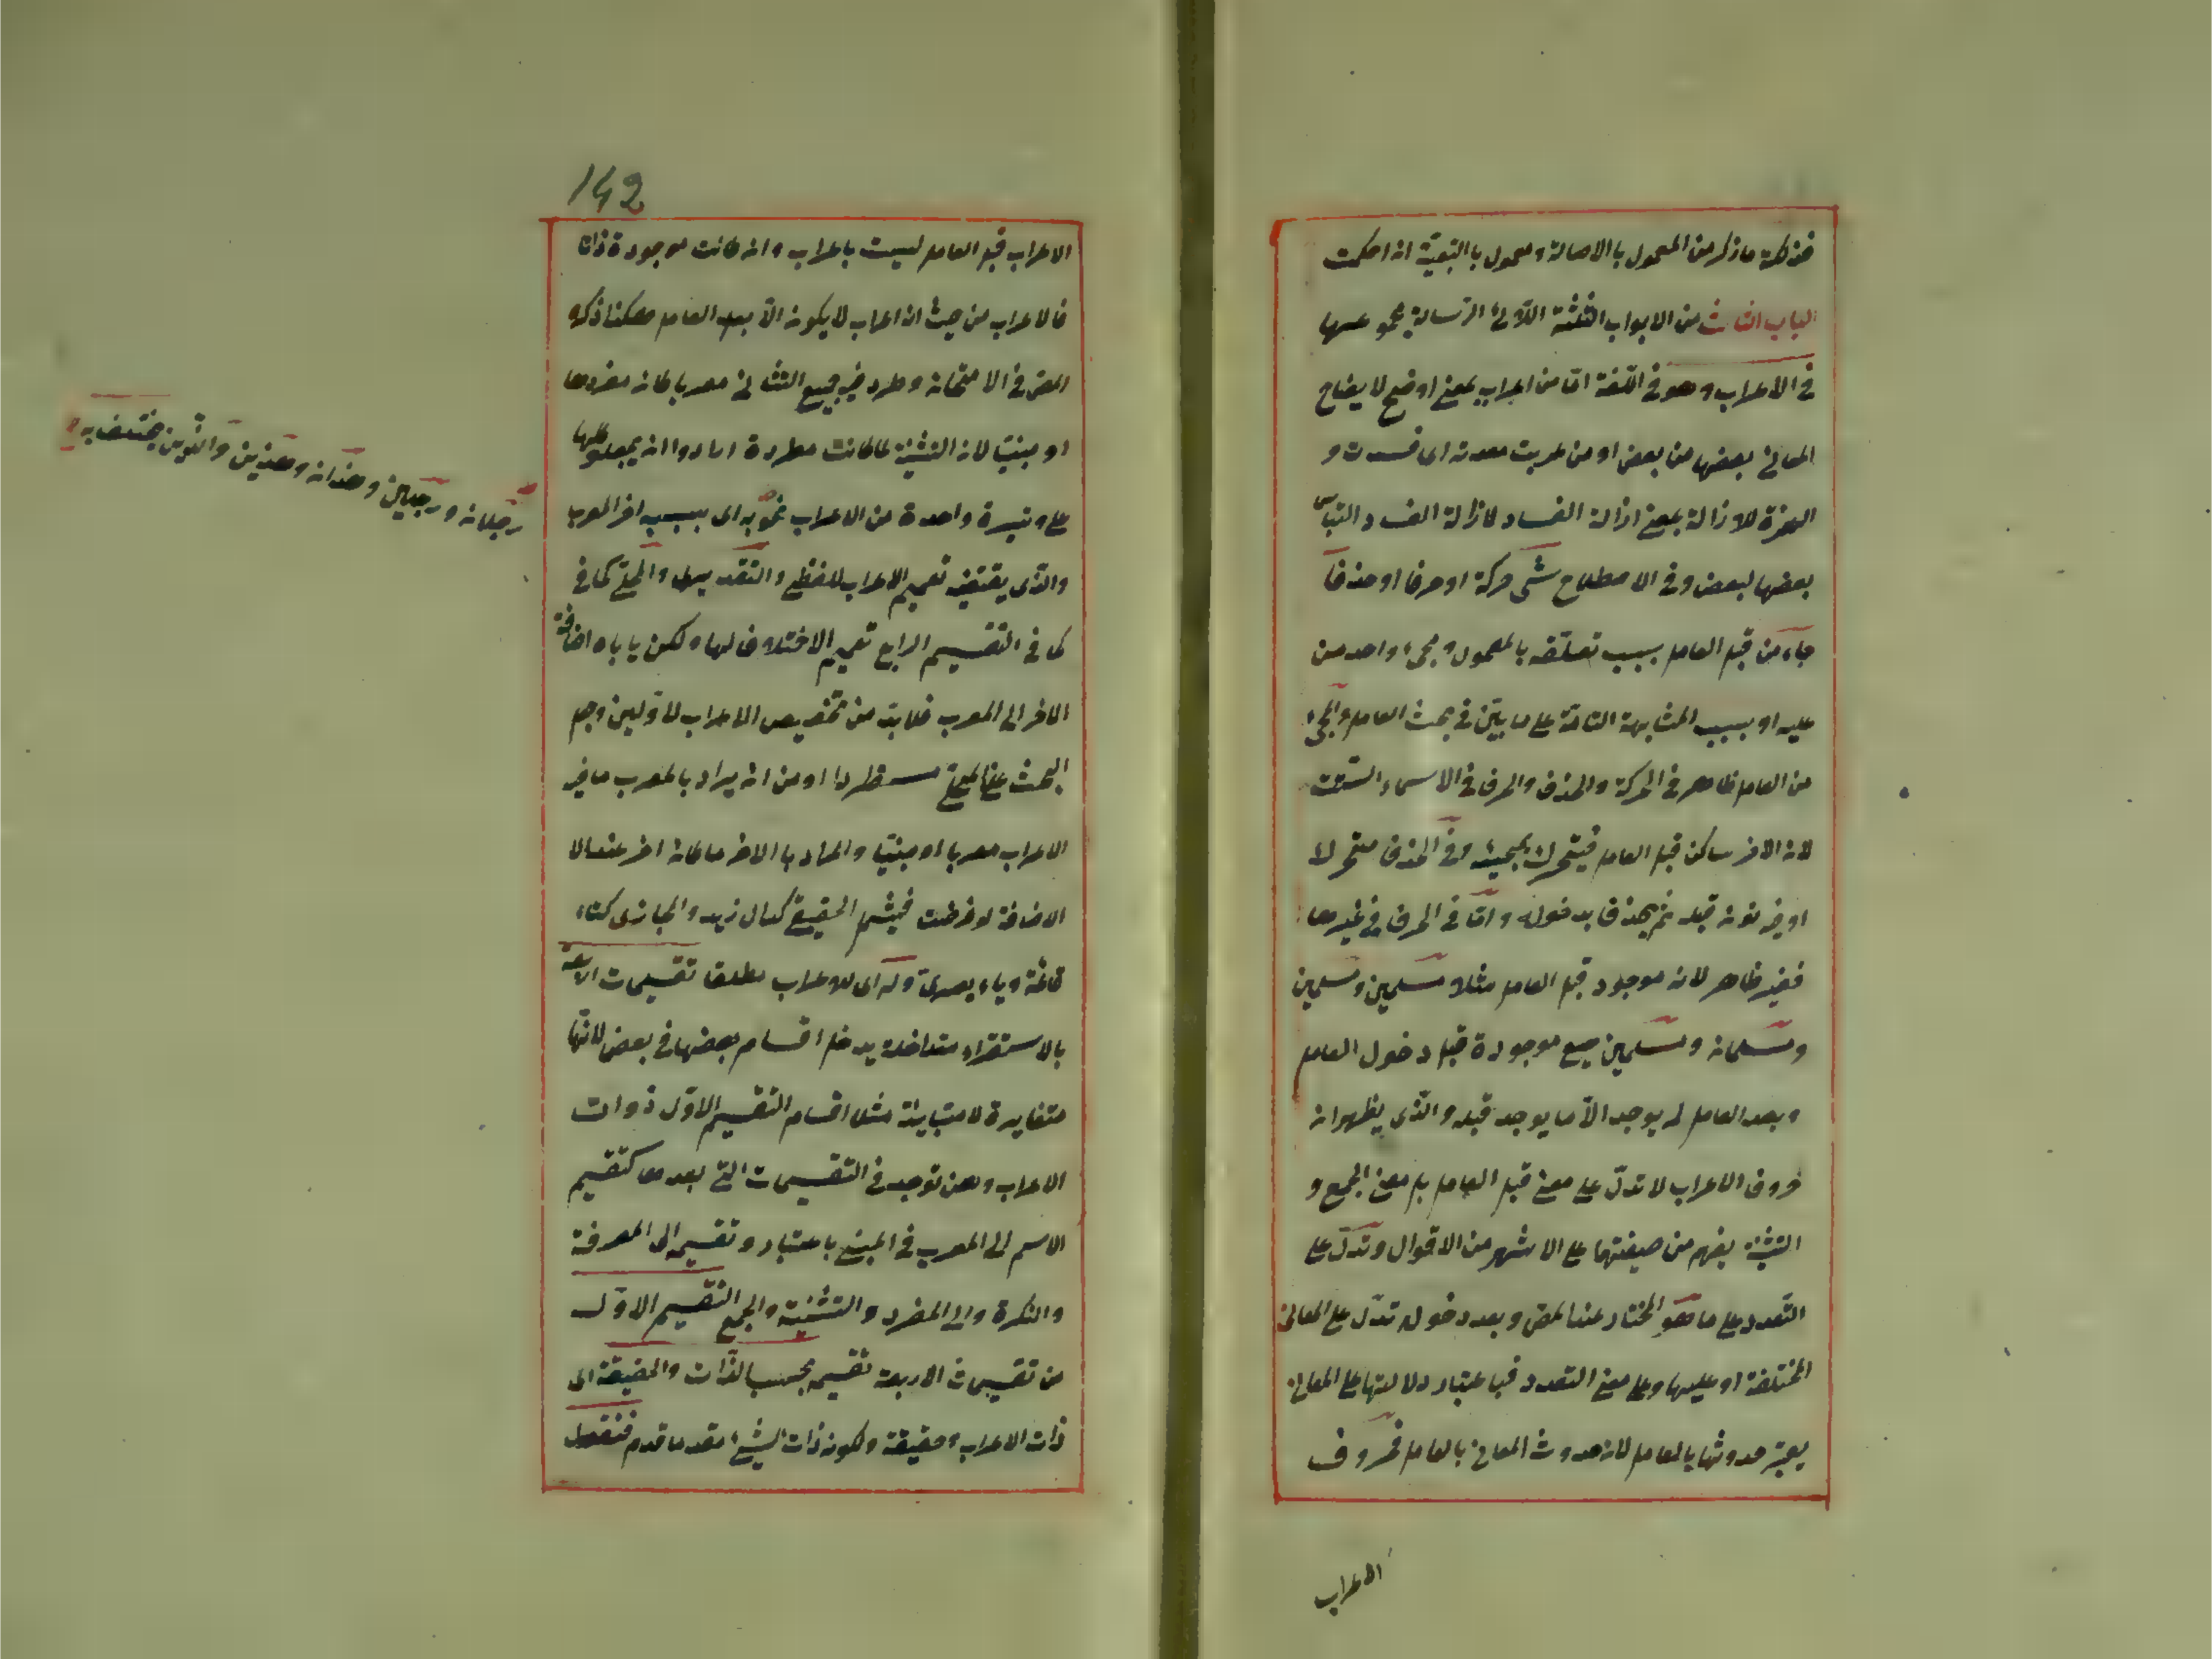 فذلكة ما ذكر من المعمول بالاصالة ومعمول بالتبعية ان احكمت
الباب الثالث من الابواب الثلثة الرسالة
في الاعراب وهو في اللغة اما من اعراب بمعنى اوضح لايضاح
المعانى بعضها من بعض او من عربت معدته اى فسدت و
الهمزة للازالة بمعنى ازالة الفساد لازالة الفساد والتباس
بعضها لبعض وفي الاصطلاح شئ حركة او حرفا او حذفا
جاء من قبل العامل بسبب تعلقه بالمعمول ومجئ واحد من
عليه او بسبب المشابهة التامة على ما بين في بحث العامل والمجئ
من العامل ظاهر في الحركة والحذف والحرف في الاسماء الستة
لان الاخر ساكن قبل العامل فيتحرك بمجيئه وفي الحذف متحرك
او فيه نون قبله ثم يحذف بدخوله واما في الحرف في غيرها
فغير ظاهر لانه موجود قبل العامل مثلا مسلمين ومسلمين
ومسلمان ومسلمين جميع موجودة قبل دخول العامل
وبعد العامل لم يوجد الا ما يوجد قبله والذى يظهر ان
حروف الاعراب لا تدل على معنى قبل العامل بل معنى الجمع و
التثنية يفهم من صيغتهما على الاشهر من الاقوال وتدل على
التعدد على ما هو المختار عند المص وبعد دخوله تدل على المعانى
المختلفة او عليها وعلى معنى التعدد فباعتبار دلالتها على المعانى
يعتبر حدوثها بالعامل لان حدوث المعانى بالعامل فحروف
الاعراب
142
الاعراب قبل العامل ليست باعراب وان كانت موجودة ذاتا
فالاعراب من حيث ان اعراب لا يكون الا بعد العامل هكذا ذكره
المص في الامتحان وطرد في جميع التثانى معربا كان مفردها
او مبنيا لان التثنية لما كانت مطردة ارادوا ان يجعلوا كلها
على وتيرة واحدة من الاعراب نحو به اى بسببه اخر المعرب
رجلان ورجلين وهذان وهذين والذين يختلف به
والذى يقتضيه تعميم الاعراب للفظى والتقديرى والمحلى كما في
كما في التقسيم الرابع تعميم الاختلاف لها ولكن يأباه اضافة
الاخر الى المعرب فلا بد من تخصيص الاعراب لاولين وجعل
البحث عن المحلى مستطردا او من ان يراد بالمعرب ما فيه
الاعراب معربا او مبنيا والمراد بالاخر ما كان اخر عند
الاضافة فيشمل الحقيقى كدال زيد والمجازى كتاء
قائمة وياء بصرى وله اى للاعراب مطلقا تقسيمات
بالاستقراء متداخلة يدخل اقسام بعضها في بعض لانها
متغايرة لا متباينة مثلا اقسام التقسيم الاول ذوات
الاعراب وهن توجد في التقسيمات التى بعدها كتقسيم
الاسم الى المعرب في المبنى باعتبار وتقسيمه الى المعرفة
والنكرة والى المفرد والتثنية والجمع التقسيم الاول
من تقسيمات الاربعة تقسيم بحسب الذات والحقيقة اى
ذات الاعراب وحقيقة ولكون ذات الشئ مقدما قدم فنقول